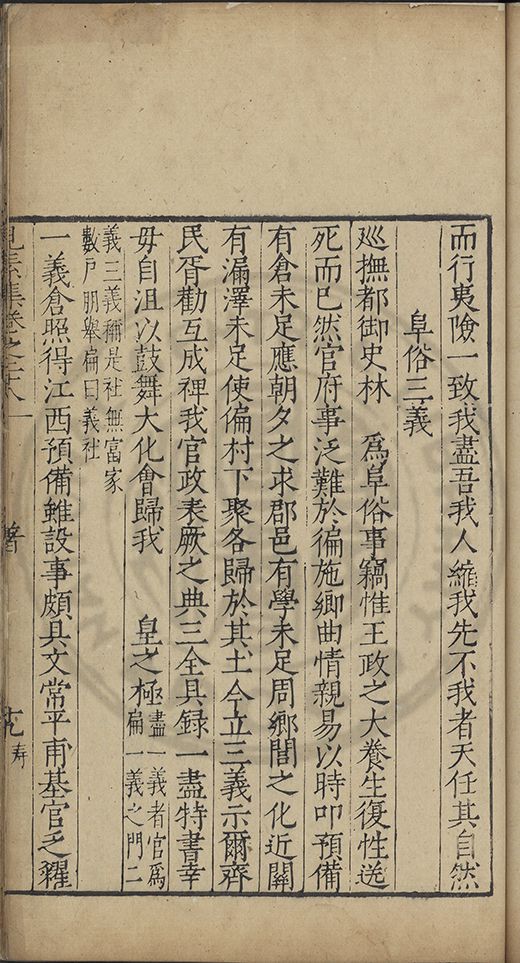 而行夷險一致我盡吾我人縮我先不我者天任其自然
阜俗三義
巡撫都御史林　為阜俗事竊惟王政之大養生復性送
死而已然官府事泛難於徧施鄉曲情親易以時叩預備
有倉未足應朝夕之求郡邑有學未足周鄉閭之化近闢
有漏澤未足使偏村下聚各歸於其土今立三義示爾齊
民胥勸互成禆我官政表厥之典三全具録一盡特書幸
毋自沮以鼓舞大化會歸我　皇之極盡一義者官為
扁一義之門二
義三義稱是社無富家
數戶朋舉扁曰義社
一義倉照得江西預備雖設事頗具文常平甫基官乏糴
見素集卷之